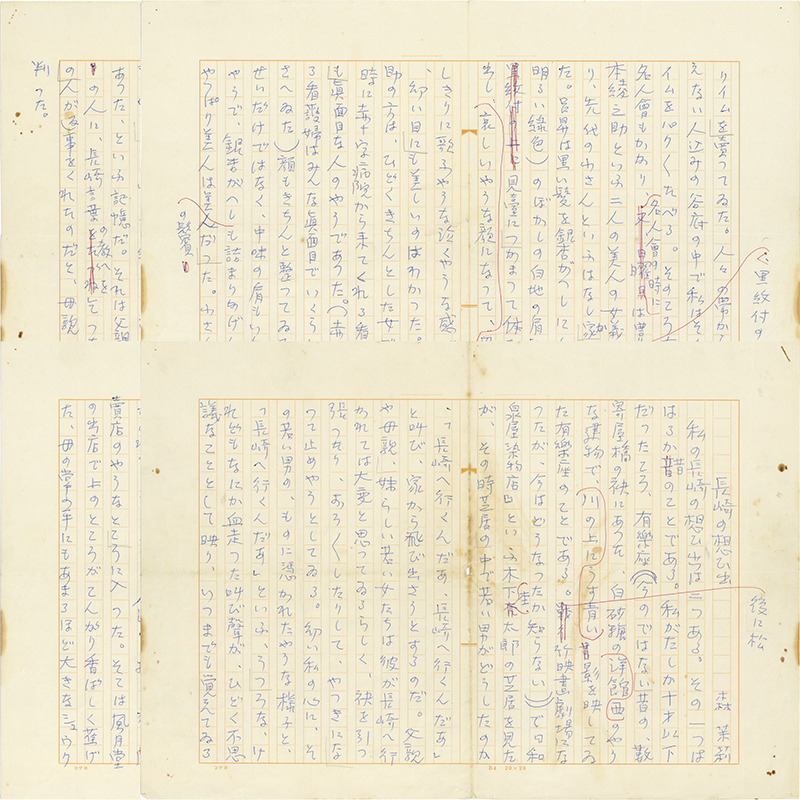 黒紋付の
リイムを賣つてゐた。人々の帶か
えない人込みの谷府の中で私はそ
イムをパクくたべる。そのころ
名人會の時に
名人會もかかり、日曜日は豊
本綾之助といふ二人の美人の女義
り、先代の小さんといふはなし家が
た。呂昇は黒い髪を銀杏がへしに
明るい綠色)のぼかしの白地の肩
見臺につかまつて体
出し、哀しいやうな顔になつて、
しきりに歌ふやうな泣くやうな感
幼い目にも美しいのはわかつた。
助の方は、ひどくきちんとした女で
時に赤十字病院から来てくれる看
も眞面目な人のやうであつた。(赤
る看護婦はみんな眞面目でいくら
さへゐた)顔もきちんと整つてゐる
せいだけではなく、中味の肩もい
やうで、銀杏がへしも詰まりめ
やつぱり美人は美人だつた。小さん
の髷
あつた、といふ記憶だ。それは父親
の人に、長崎言葉を
の教へを
の人が返事をくれたのだと、母親
判つた。
長崎の想ひ出
森 茉莉
後に松
私の長崎の想ひ出は二つある。その一つは
はるか昔のことである。私がたしか十才以下
だつたころ、有樂座(今のではない昔の、数
寄屋橋の袂にあつた、白砂糖の洋館のやう
な建物で、川の上にうす青い影を映してゐ
た有樂座のことである。映畫劇場にな
つたが、今はどうなつたか知らない)で「和
泉屋染物店」といふ木下杢太郎の芝居を見た
が、その時芝居の中で若い男がどうしたのか
、「長崎へ行くんだあ、長崎へ行くんだあ」
と叫び、家から飛び出さうとするのだ。父親
や母親、妹らしい若い女たちは彼が長崎へ行
かれては大変と思つてゐるらしく、袂を引つ
張つたり、おろくしたりして、やつきにな
つて止めやうとしてゐる。幼い私の心に、そ
の若い男の、ものに憑かれたやうな様子と、
「長崎へ行くんだあ」といふ、うつろな、け
れどもなにか血走つた叫び聲が、ひどく不思
議なこととして映り、いつまでも覚えてゐる
賣店のやうなところに入つた。そこは風月堂
の出店で上のところがこんがり香ばしく焦げ
た、母の掌の半にもあまるほど大きなシュウク
コクヨ
コクヨ
B4 20×20